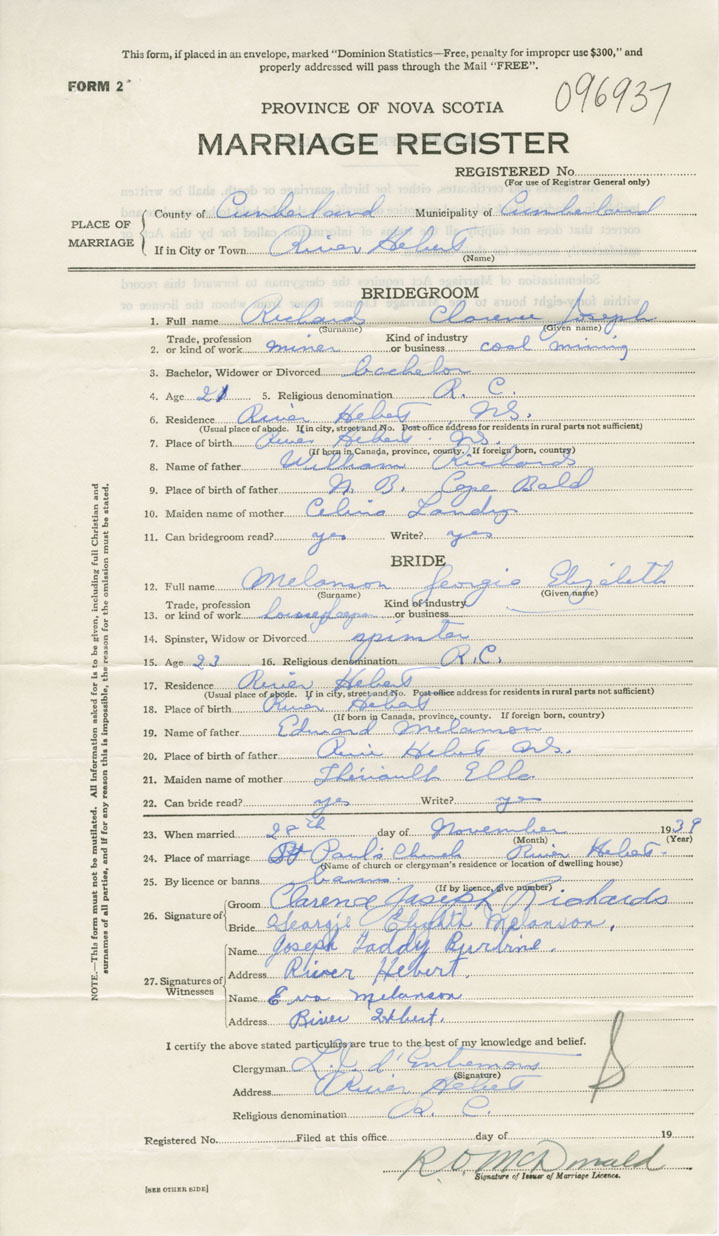 This form, if placed in an envelope, marked "Dominion Statistics—Free, penalty for improper use $300," and
properly addressed will pass through the Mail "FREE".
FORM 2
096937
PROVINCE OF NOVA SCOTIA
MARRIAGE REGISTER
REGISTERED No.
(For use of Registrar General only)
PLACE OF MARRIAGE
County of Cumberland Municipality of Cumberland
If in City or Town River Hebert
(Name)
BRIDEGROOM
1. Full name Richards Clarence Joseph
(Surname) (Given name)
2. Trade, profession or kind of work miner Kind of industry or business coal mining
3. Bachelor, Widower or Divorced bachelor
4. Age 21 5. Religious denomination R. C.
6. Residence River Hebert N.S.
(Usual place of abode. If in city, street and No. Post office address for residents in rural parts not sufficient)
7. Place of birth River Hebert N.S.
(If born in Canada, province, county. If foreign born, country)
8. Name of father William Richards
9. Place of birth of father N. B. Cape Bald
10. Maiden name of mother Celina Landry
11. Can bridegroom read? yes Write? yes
BRIDE
12. Full name Melanson Georgie Elizabeth
(Surname) (Given name)
13. Trade, profession or kind of work Kind of industry or business
14. Spinster, Widow or Divorced spinster
15. Age 23 16. Religious denomination R.C.
17. Residence River Hebert
(Usual place of abode. If in city, street and No. Post office address for residents in rural parts not sufficient)
18. Place of birth River Hebert
(If born in Canada, province, county. If foreign born, country)
19. Name of father Edward Melanson
20. Place of birth of father River Hebert N.S.
21. Maiden name of mother Thériault Ella
22. Can bride read? yes Write? yes
23. When married 28th day of November 1939
(Month) (Year)
24. Place of marriage St Paul's Church River Hebert.
(Name of church or clergyman's residence or location of dwelling house)
25. By licence or banns banns
(If by licence, give number)
26. Signature of
Groom Clarence Joseph Richards
Bride Georgie Melanson.
27. Signatures of Witnesses
Name Joseph Taddy
Address River Hebert.
Name Eva Melanson
Address River Hebert.
I certify the above stated particulars are true to the best of my knowledge and belief.
Clergyman d'Entremont
(Signature)
Address River Hebert
Religious denomination R. C.
Registered No. Filed at this office day of 19
R.O. McDonald
Signature of Issuer of Marriage Licence.
[SEE OTHER SIDE]
NOTE.—This form must not be mutilated. All information asked for is to be given, including full Christian and
surnames of all parties, and if for any reason this is impossible, the reason for the omission must be stated.